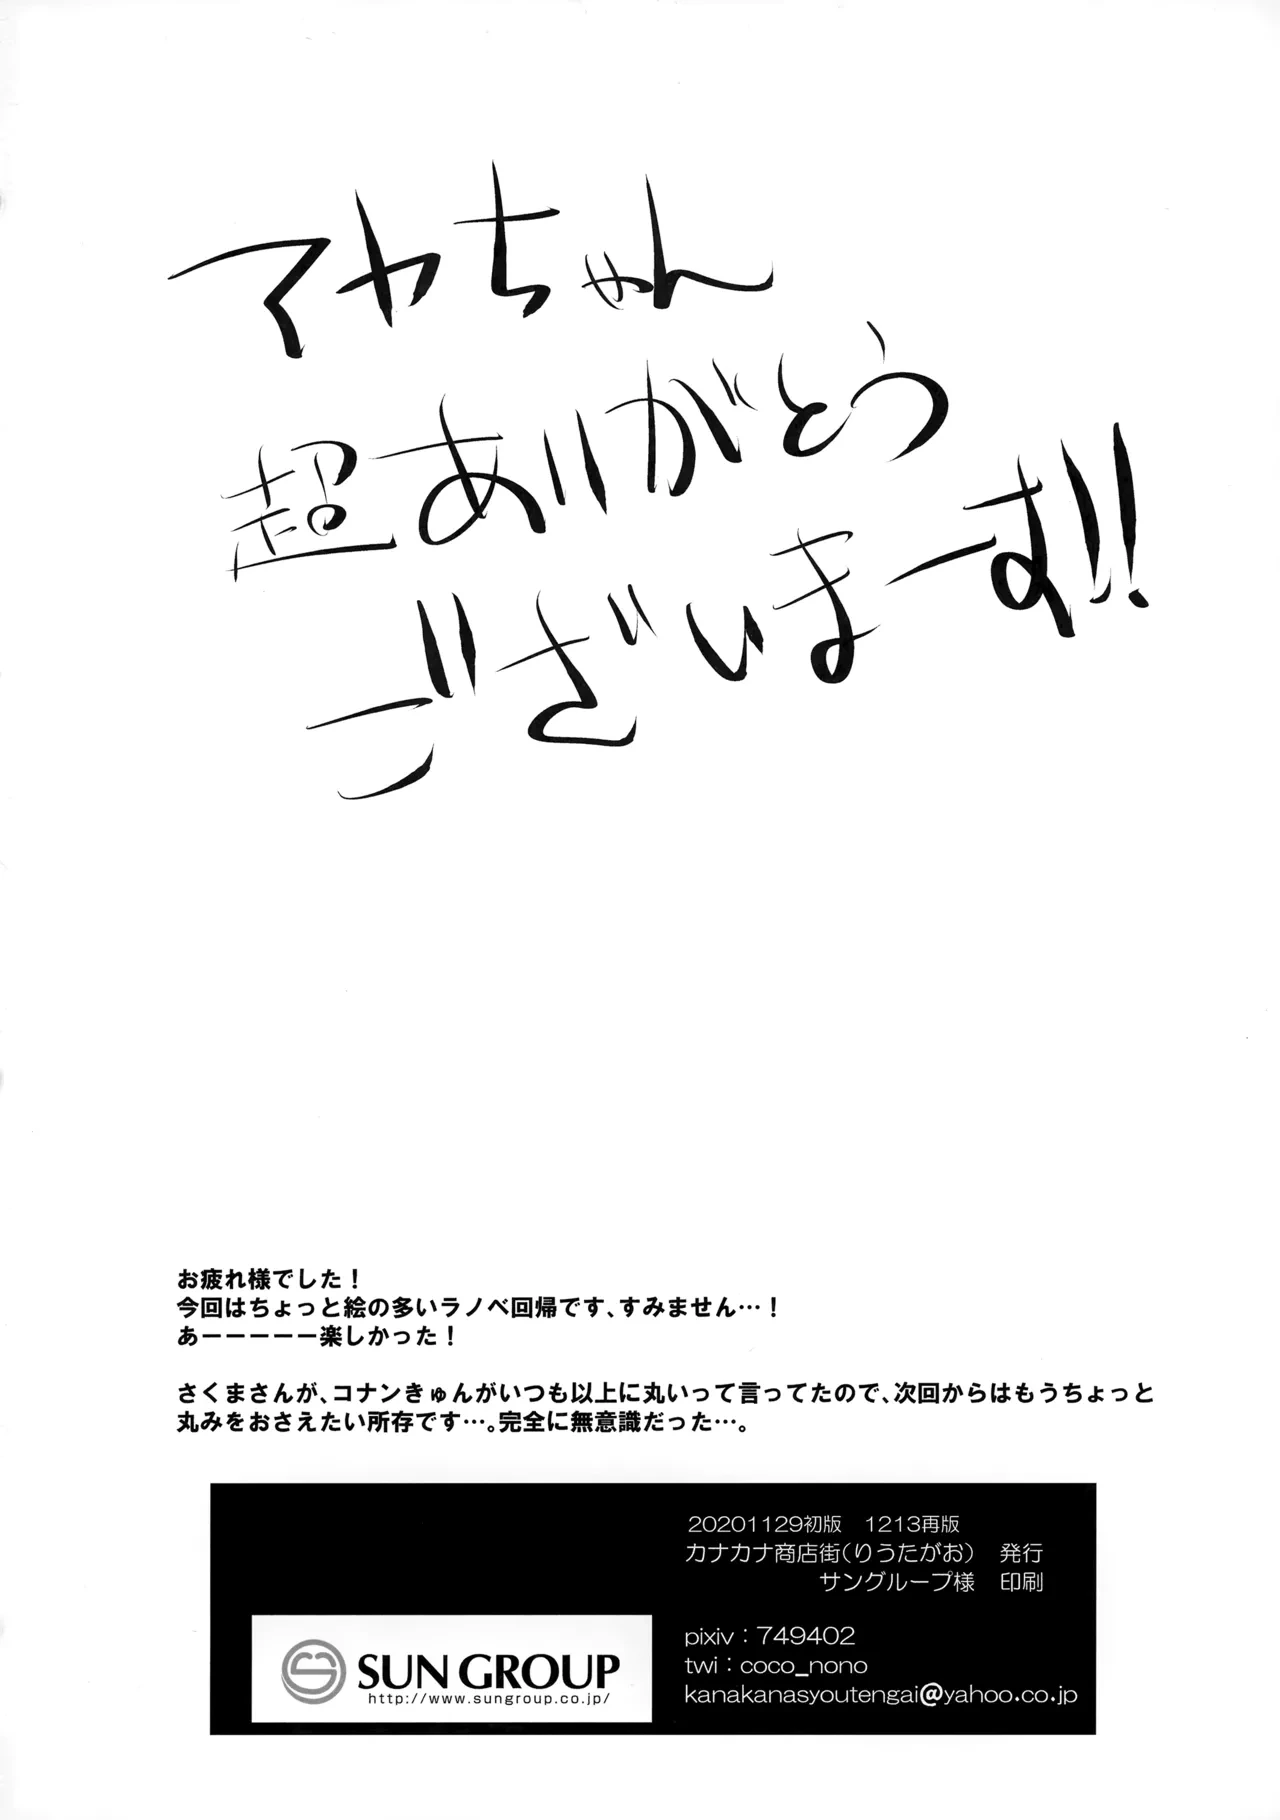 マヤちゃん
超ありがとう
ございまーす!!
お疲れ様でした！
今回はちょっと絵の多いラノベ回帰です、すみません…！
あーーーーー楽しかった！
さくまさんが、コナンきゅんがいつも以上に丸いって言ってたので、次回からはもうちょっと
丸みをおさえたい所存です…。完全に無意識だった…。
20201129初版　1213再版
カナカナ商店街（りうたがお）　発行
サングループ様　印刷
SUN GROUP
http://www.sungroup.co.jp/
pixiv：749402
twi：coco_nono
kanakanasyoutengai@yahoo.co.jp